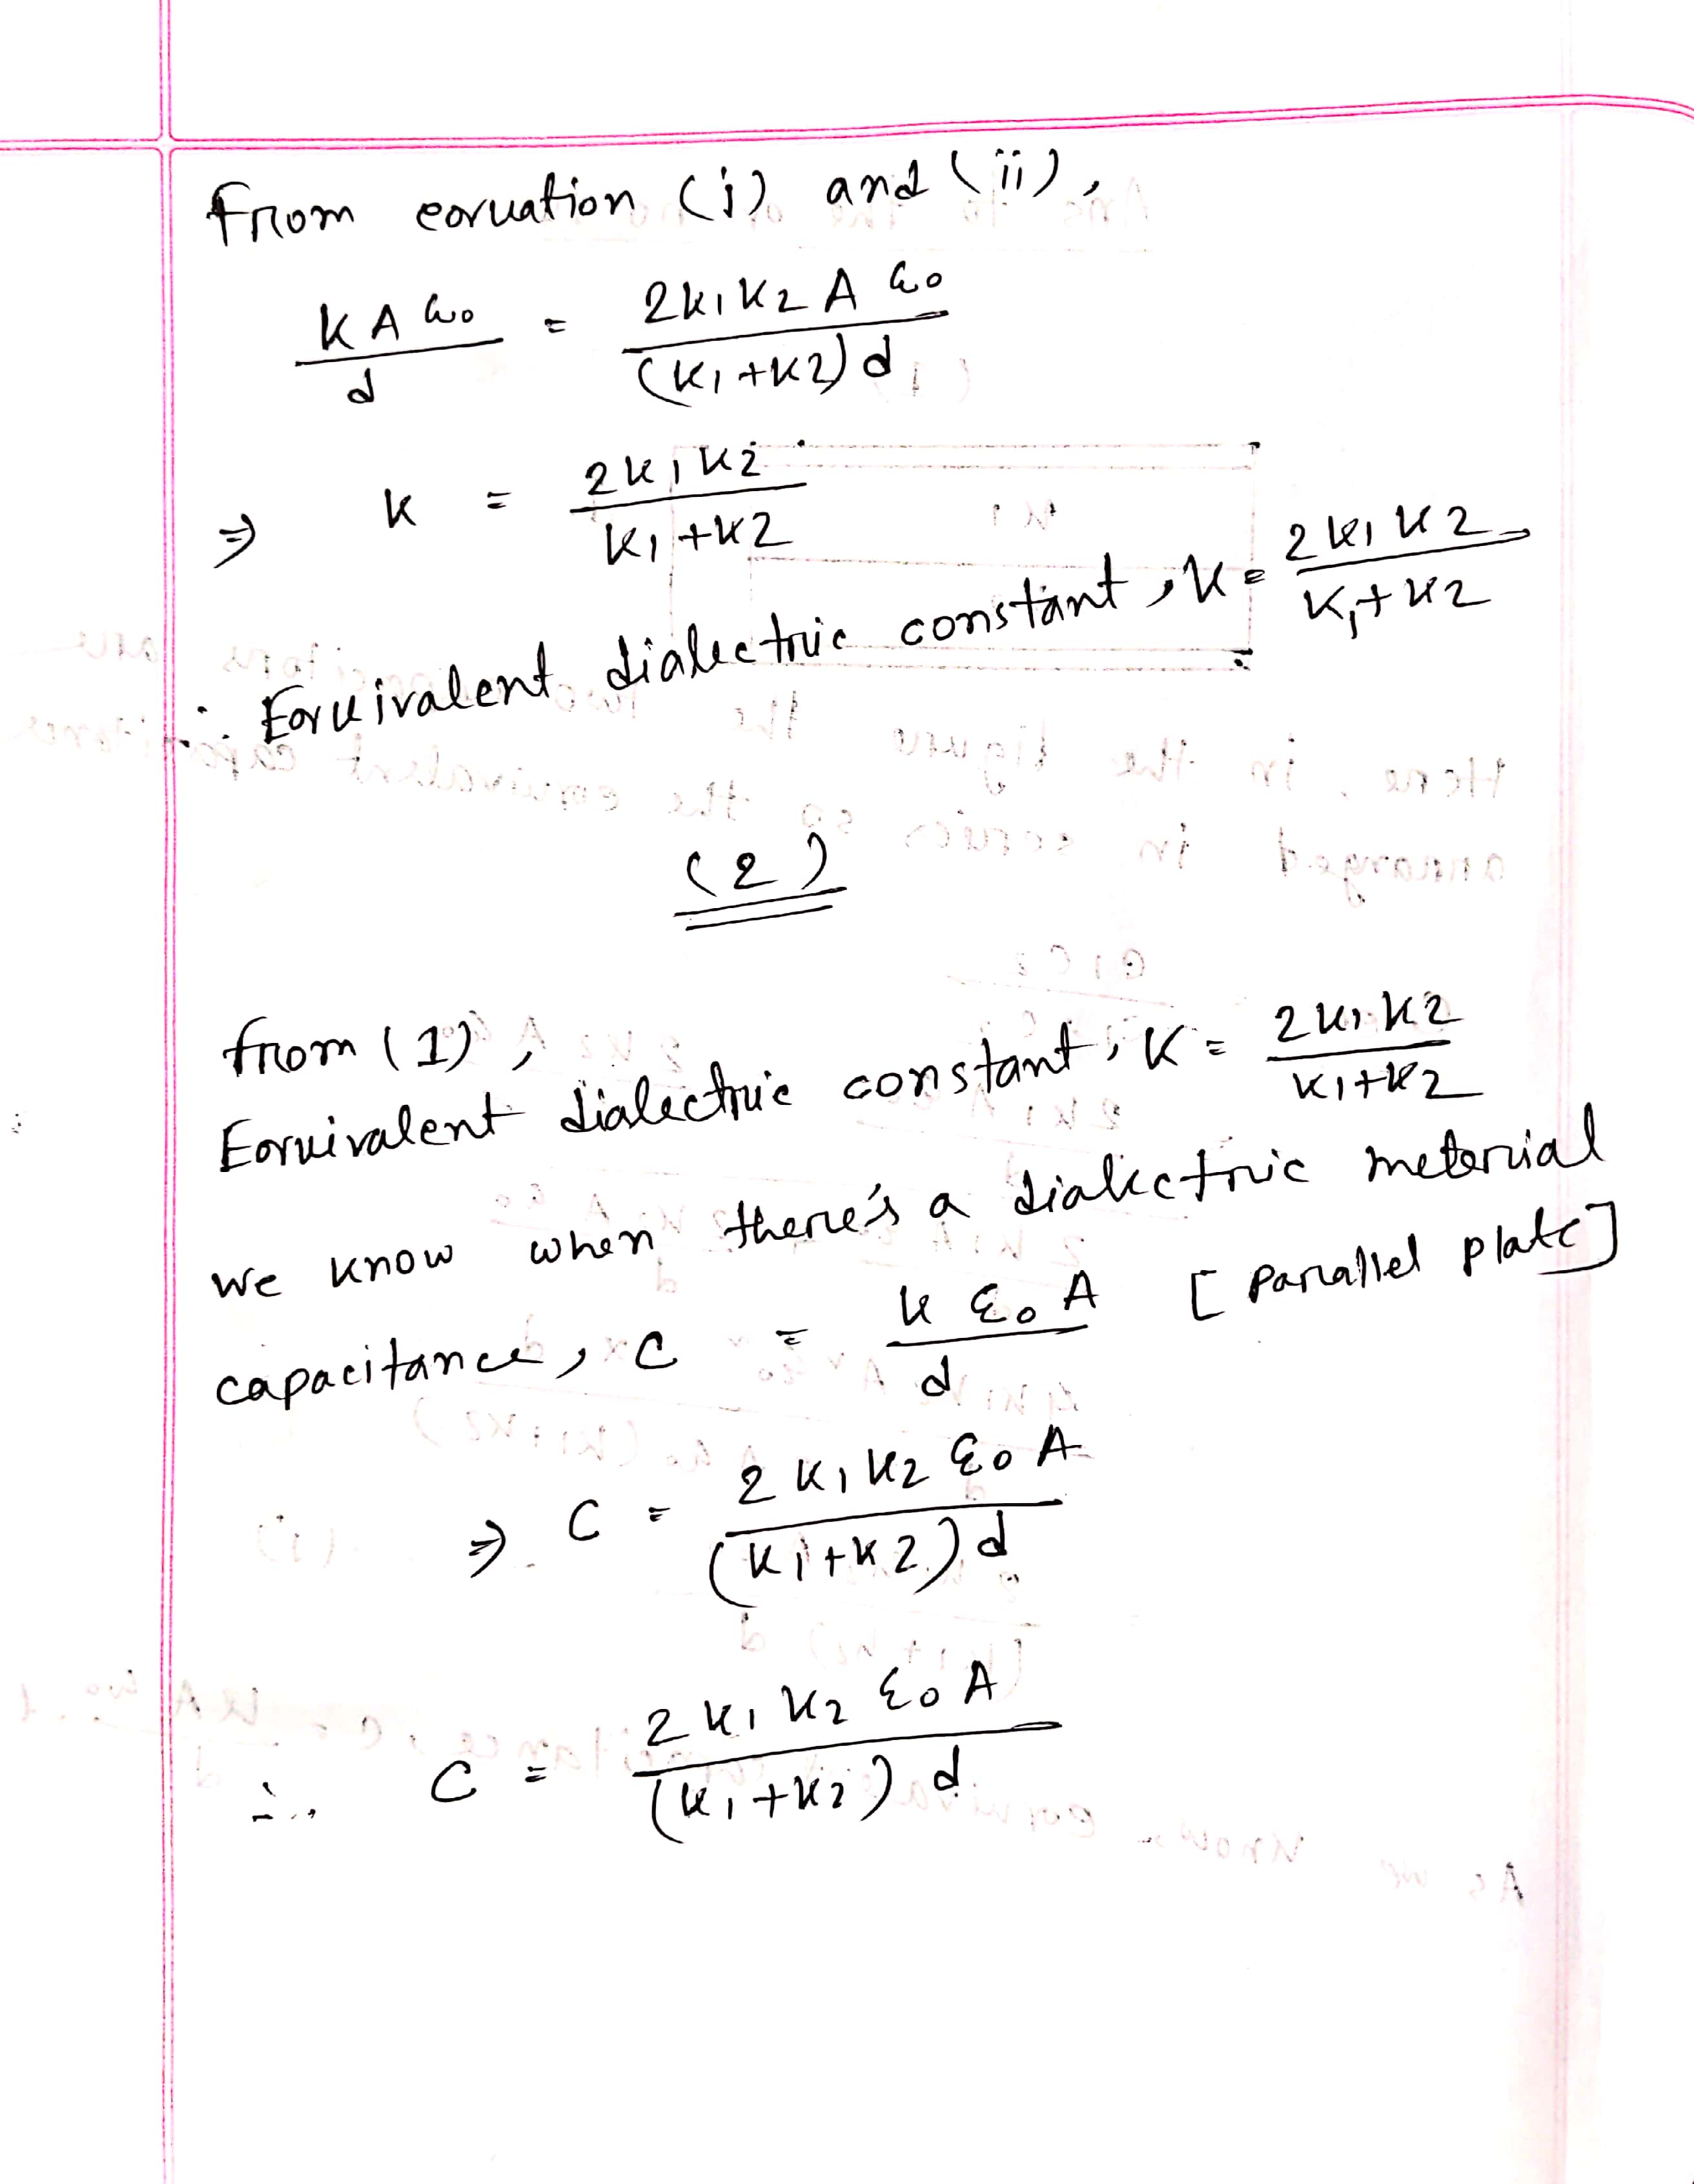 From equation (i) and (ii),
KAε₀/d = 2K₁K₂Aε₀/(K₁+K₂)d
⇒ K = 2K₁K₂/K₁+K₂
∴ Equivalent dialectric constant, K = 2K₁K₂/K₁+K₂
(2)
from (1),
Equivalent dialectric constant, K = 2K₁K₂/K₁+K₂
we know when there's a dialectric meterial
capacitance, C = Kε₀A/d [parallel plate]
⇒ C = 2K₁K₂ε₀A/(K₁+K₂)d
∴ C = 2K₁K₂ε₀A/(K₁+K₂)d